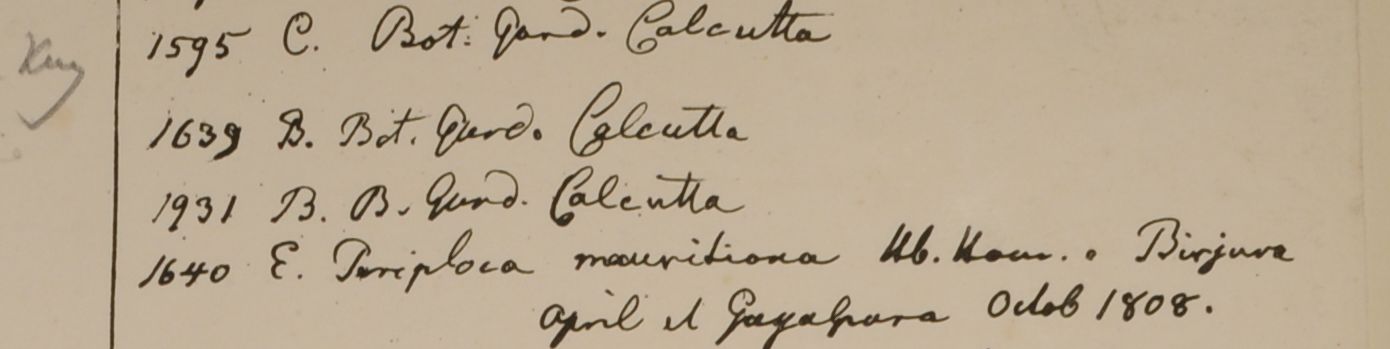 1595 C. Bot. Gard. Calcutta
1639 B. Bot. Gard. Calcutta
1931 B. B. Gard. Calcutta
1640 E. Periploca mauritiana Hb. Ham. Birjura
April et Gayalpara Octob 1808.